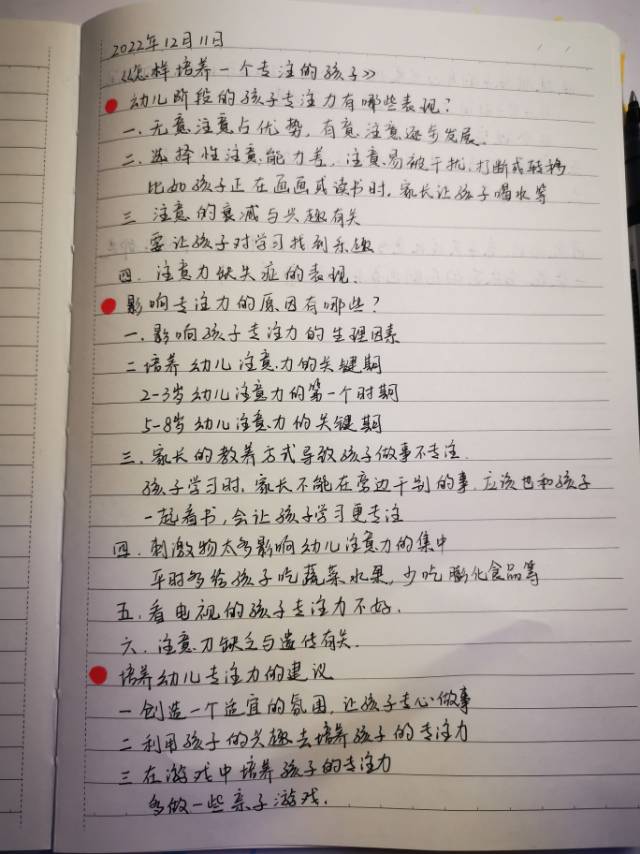 2022年12月11日
《怎样培养一个专注的孩子》
幼儿阶段的孩子专注力有哪些表现？
一、无意注意占优势，有意注意逐步发展.
二、选择性注意能力差，注意易被干扰、打断或转移
比如孩子正在画画或读书时，家长让孩子喝水等
三 注意的衰减与兴趣有关
要让孩子对学习找到乐趣
四、注意力缺失症的表现.
影响专注力的原因有哪些？
一、影响孩子专注力的生理因素
二 培养幼儿注意力的关键期
2-3岁幼儿注意力的第一个时期
5-8岁幼儿注意力的关键期
三、家长的教养方式导致孩子做事不专注.
孩子学习时，家长不能在旁边干别的事，应该也和孩子
一起看书，会让孩子学习更专注
四、刺激物太多影响幼儿注意力的集中
平时多给孩子吃蔬菜水果，少吃膨化食品等
五、看电视的孩子专注力不好.
六、注意力缺乏与遗传有关.
培养幼儿专注力的建议
一 创造一个适宜的氛围，让孩子专心做事
二 利用孩子的兴趣去培养孩子的专注力
三 在游戏中培养孩子的专注力
多做一些亲子游戏.